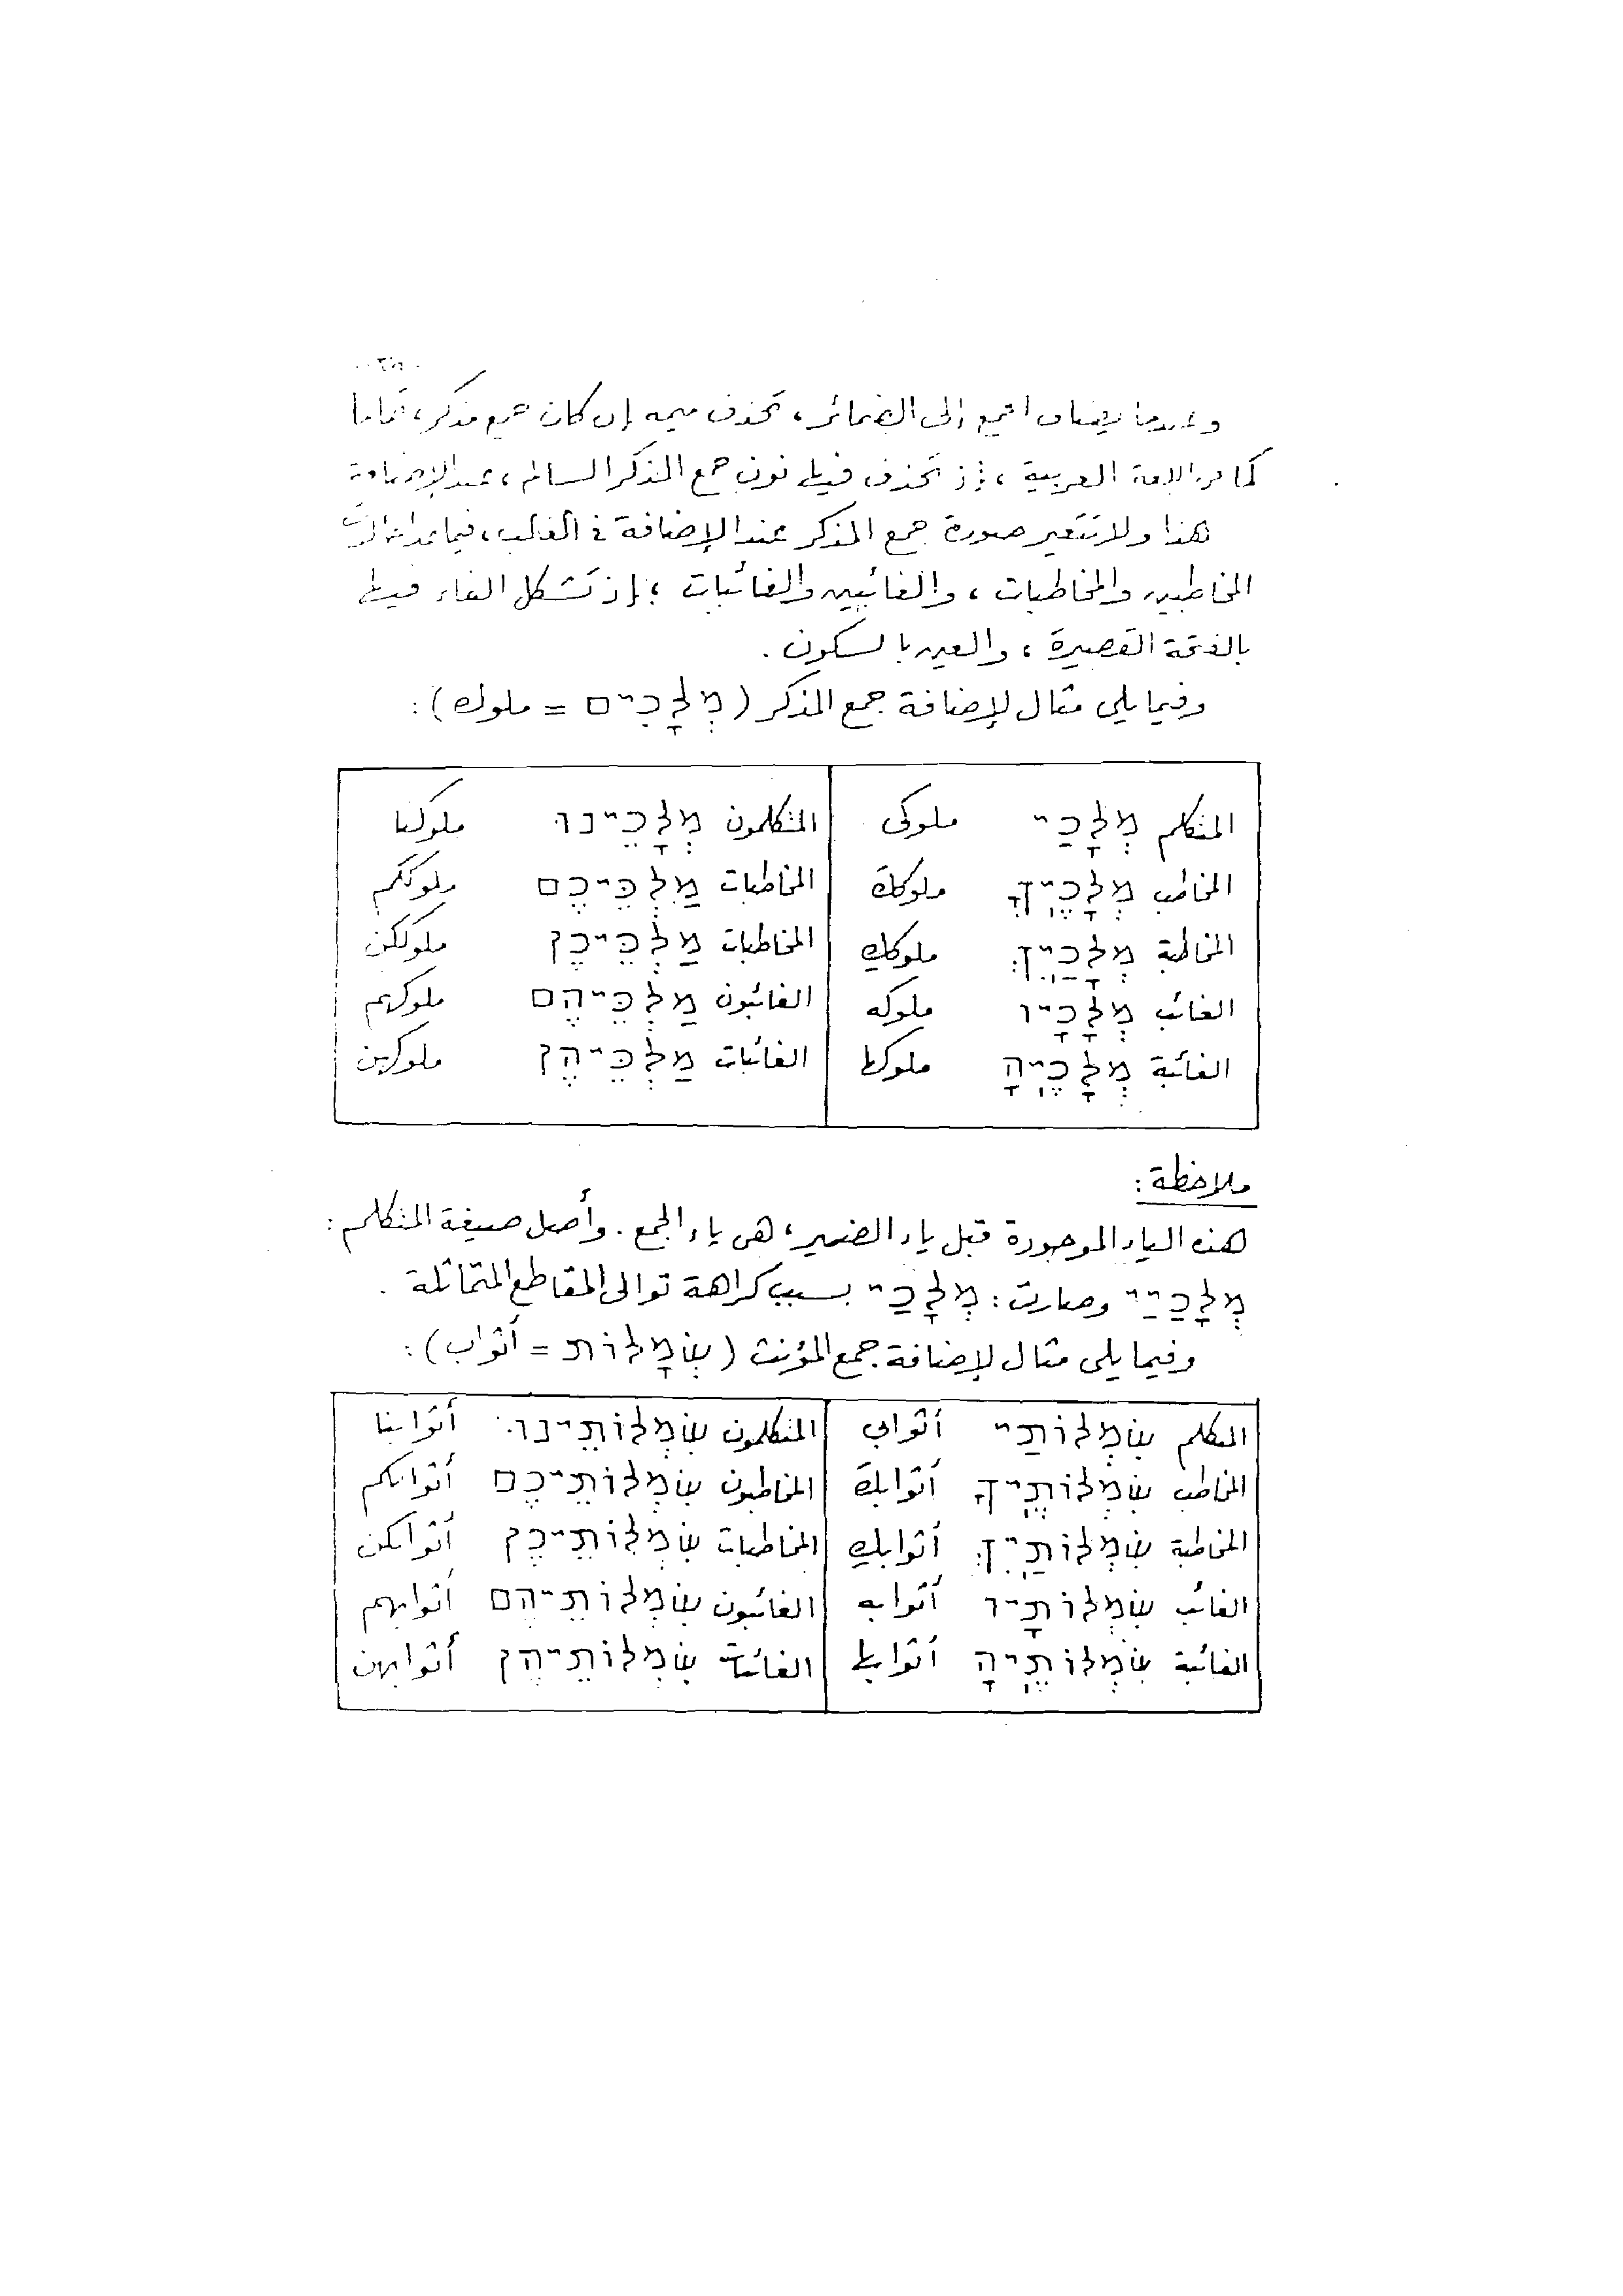 وعندما يضاف الجمع إلى الضمائر، تحذف ميمه إن كان جمع مذكر، تماما
كما فى اللغة العربية، إذ تحذف فيها نون جمع المذكر السالم، عند الإضافة
هذا ولا تتغير صورة جمع المذكر عند الإضافة فى الغالب، فيما عدا حالات
المخاطبين والمخاطبات، والغائبين والغائبات؛ إذ تشكل الفاء فيها
بالفتحة القصيرة، والعين بالسكون.
وفيما يلى مثال لإضافة جمع المذكر (מְלָכִים = ملوك):
المتكلم מְלָכַי ملوكى المتكلمون מְלָכֵינוּ ملوكنا
المخاطب מְלָכֶיךָ ملوككَ المخاطبات מַלְכֵיכֶם ملوككم
المخاطبة מְלָכַיִךְ ملوككِ المخاطبات מַלְכֵיכֶן ملوككن
الغائب מְלָכָיו ملوكه الغائبون מַלְכֵיהֶם ملوكهم
الغائبة מְלָכֶיהָ ملوكها الغائبات מַלְכֵיהֶן ملوكهن
ملاحظة:
هذه الياء الموجودة قبل ياء الضمير، هى ياء الجمع. وأصل صيغة المتكلم:
מְלָכַיַי وصارت: מְלָכַי بسبب كراهة توالى المقاطع المتماثلة.
وفيما يلى مثال لإضافة جمع المؤنث (שְׂמָלוֹת = أثواب):
المتكلم שִׂמְלוֹתַי أثوابي المتكلمون שִׂמְלוֹתֵינוּ أثوابنا
المخاطب שִׂמְלוֹתֶיךָ أثوابكَ المخاطبون שִׂמְלוֹתֵיכֶם أثوابكم
المخاطبة שִׂמְלוֹתַיִךְ أثوابكِ المخاطبات שִׂמְלוֹתֵיכֶן أثوابكن
الغائب שִׂמְלוֹתָיו أثوابه الغائبون שִׂמְלוֹתֵיהֶם أثوابهم
الغائبة שִׂמְלוֹתֶיהָ أثوابها الغائبات שִׂמְלוֹתֵיהֶן أثوابهن